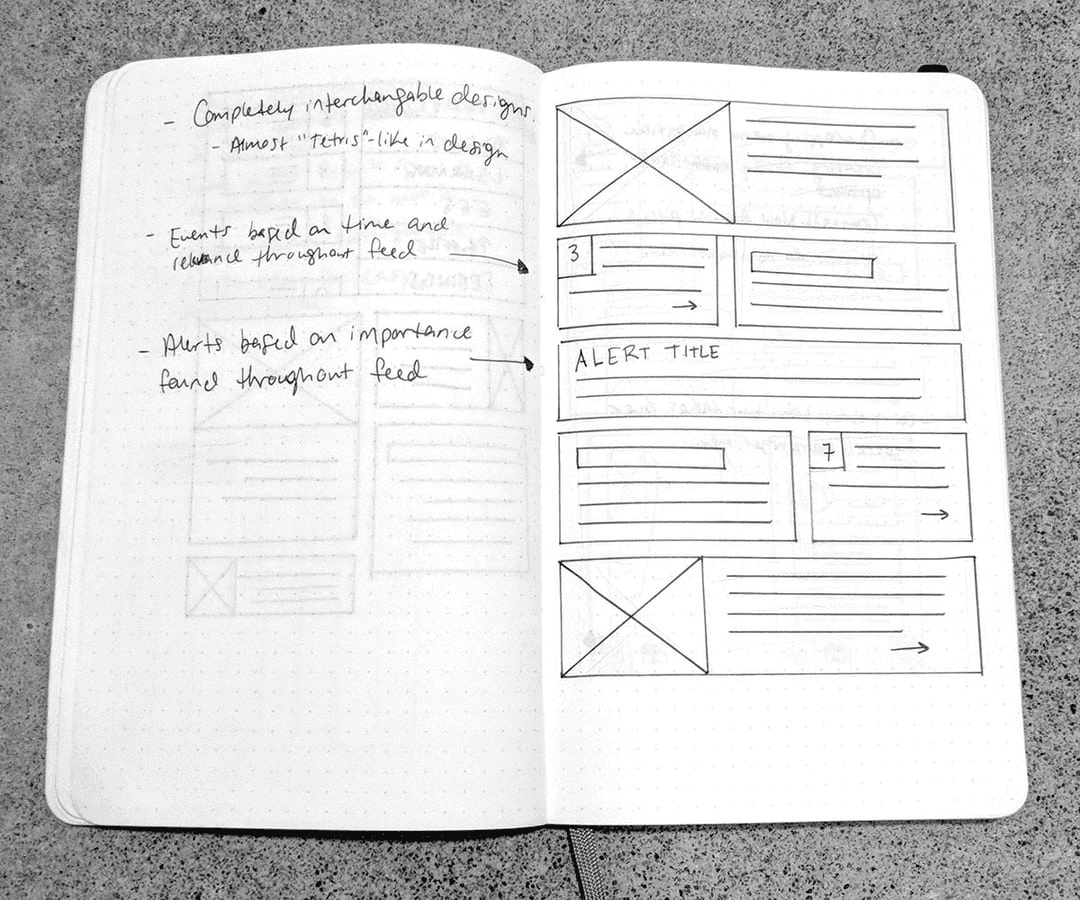 - Completely interchangable designs.
- Almost "Tetris"-like in design
- Events based on time and
relevance throughout feed
- Alerts based on importance
found throughout feed
3
ALERT TITLE
7